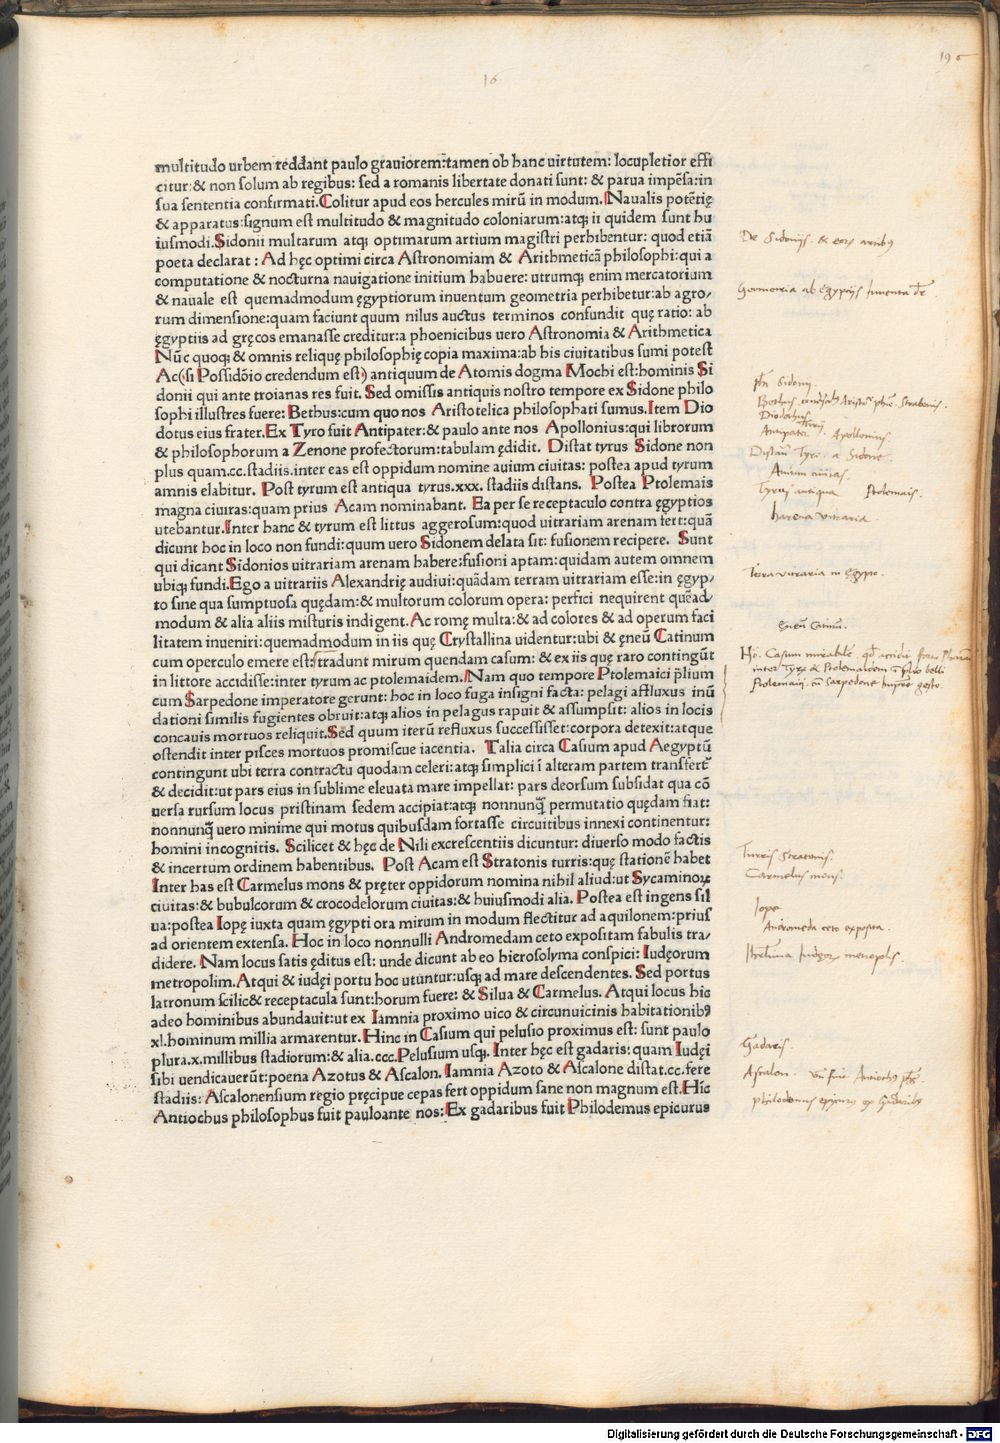 196
16
multitudo urbem reddant paulo grauiorem:tamen ob hanc uirtutem: locupletior effi
citur:& non solum ab regibus: sed a romanis libertate donati sunt: & parua impēsa:in
sua sententia confirmati.Colitur apud eos hercules mirū in modum.Naualis potētię
& apparatus:signum est multitudo & magnitudo coloniarum:atq; ii quidem sunt hu
iusmodi.Sidonii multarum atq; optimarum artium magistri perhibentur: quod etiā
poeta declarat : Ad hęc optimi circa Astronomiam & Arithmeticā philosophi:qui a
computatione & nocturna nauigatione initium habuere: utrumq; enim mercatorium
& nauale est quemadmodum ęgyptiorum inuentum geometria perhibetur:ab agro/
rum dimensione:quam faciunt quum nilus auctus terminos confundit quę ratio: ab
ęgyptiis ad gręcos emanasse creditur:a phoenicibus uero Astronomia & Arithmetica
Nūc quoq; & omnis reliquę philosophię copia maxima:ab his ciuitatibus sumi potest
Ac(si Possidōio credendum est) antiquum de Atomis dogma Mochi est:hominis Si
donii qui ante troianas res fuit. Sed omissis antiquis nostro tempore ex Sidone philo
sophi illustres fuere: Bethus:cum quo nos Aristotelica philosophati sumus.Item Dio
dotus eius frater.Ex Tyro fuit Antipater:& paulo ante nos Apollonius:qui librorum
& philosophorum a Zenone profectorum:tabulam ędidit. Distat tyrus Sidone non
plus quam.cc.stadiis.inter eas est oppidum nomine auium ciuitas: postea apud tyrum
amnis elabitur. Post tyrum est antiqua tyrus.xxx. stadiis distans. Postea Ptolemais
magna ciuitas:quam prius Acam nominabant. Ea per se receptaculo contra ęgyptios
utebantur.Inter hanc & tyrum est littus aggerosum:quod uitrariam arenam fert:quā
dicunt hoc in loco non fundi:quum uero Sidonem delata sit: fusionem recipere. Sunt
qui dicant Sidonios uitrariam arenam habere:fusioni aptam:quidam autem omnem
ubiq; fundi.Ego a uitrariis Alexandrię audiui:quādam terram uitrariam esse:in ęgyp/
to sine qua sumptuosa quędam:& multorum colorum opera: perfici nequirent quēad/
modum & alia aliis misturis indigent. Ac romę multa:& ad colores & ad operum faci
litatem inueniri:quemadmodum in iis quę Crystallina uidentur:ubi & ęneū Catinum
cum operculo emere est:tradunt mirum quendam casum: & ex iis quę raro contingūt
in littore accidisse:inter tyrum ac ptolemaidem.Nam quo tempore Ptolemaici p̄lium
cum Sarpedone imperatore gerunt: hoc in loco fuga insigni facta: pelagi affluxus inū
dationi similis fugientes obruit:atq; alios in pelagus rapuit & assumpsit: alios in locis
concauis mortuos reliquit.Sed quum iterū refluxus successisset:corpora detexit:atque
ostendit inter pisces mortuos promiscue iacentia. Talia circa Casium apud Aegyptū
contingunt ubi terra contractu quodam celeri:atq; simplici ī alteram partem transfert̄
& decidit:ut pars eius in sublime eleuata mare impellat: pars deorsum subsidat qua cō
uersa rursum locus pristinam sedem accipiat:atq; nonnunq̄ permutatio quędam fiat:
nonnunq̄ uero minime qui motus quibusdam fortasse circuitibus innexi continentur:
homini incognitis. Scilicet & hęc de Nili excrescentiis dicuntur: diuerso modo factis
& incertum ordinem habentibus. Post Acam est Stratonis turris:quę stationē habet
Inter has est Carmelus mons & pręter oppidorum nomina nihil aliud:ut Sycaminoꝝ
ciuitas:& bubulcorum & crocodelorum ciuitas:& huiusmodi alia. Postea est ingens sil
ua:postea Iopę iuxta quam ęgypti ora mirum in modum flectitur ad aquilonem:prius
ad orientem extensa. Hoc in loco nonnulli Andromedam ceto expositam fabulis tra/
didere. Nam locus satis ęditus est: unde dicunt ab eo hierosolyma conspici: Iudęorum
metropolim.Atqui & iudęi portu hoc utuntur:usq; ad mare descendentes. Sed portus
latronum scilic& receptacula sunt:horum fuere: & Silua & Carmelus. Atqui locus hic
adeo hominibus abundauit:ut ex Iamnia proximo uico & circunuicinis habitationibꝰ
xl.hominum millia armarentur. Hinc in Casium qui pelusio proximus est: sunt paulo
plura.x.millibus stadiorum:& alia.ccc.Pelusium usq;. Inter hęc est gadaris: quam Iudęi
sibi uendicauerūt:poena Azotus & Ascalon. Iamnia Azoto & Ascalone distat.cc.fere
stadiis: Ascalonensium regio pręcipue cepas fert oppidum sane non magnum est.Hic
Antiochus philosophus fuit pauloante nos: Ex gadaribus fuit Philodemus epicurus
De Sidonijs. & eorꝝ artibꝰ
Geometria ab Egyptijs inuenta
Diodochus
Antipater Apollonius.
Tyrus antiqua Ptolemais.
harena vitraria
Terra vitraria in Egypto.
ęneū Catinum.
Turris Stratonis.
Carmelus mons.
Iope
Andromeda ceto exposita.
metropolis.
Gadaris.
Ascalon.
philodemus epicurꝰ ex Gadaribꝰ
Digitalisierung gefördert durch die Deutsche Forschungsgemeinschaft - DFG